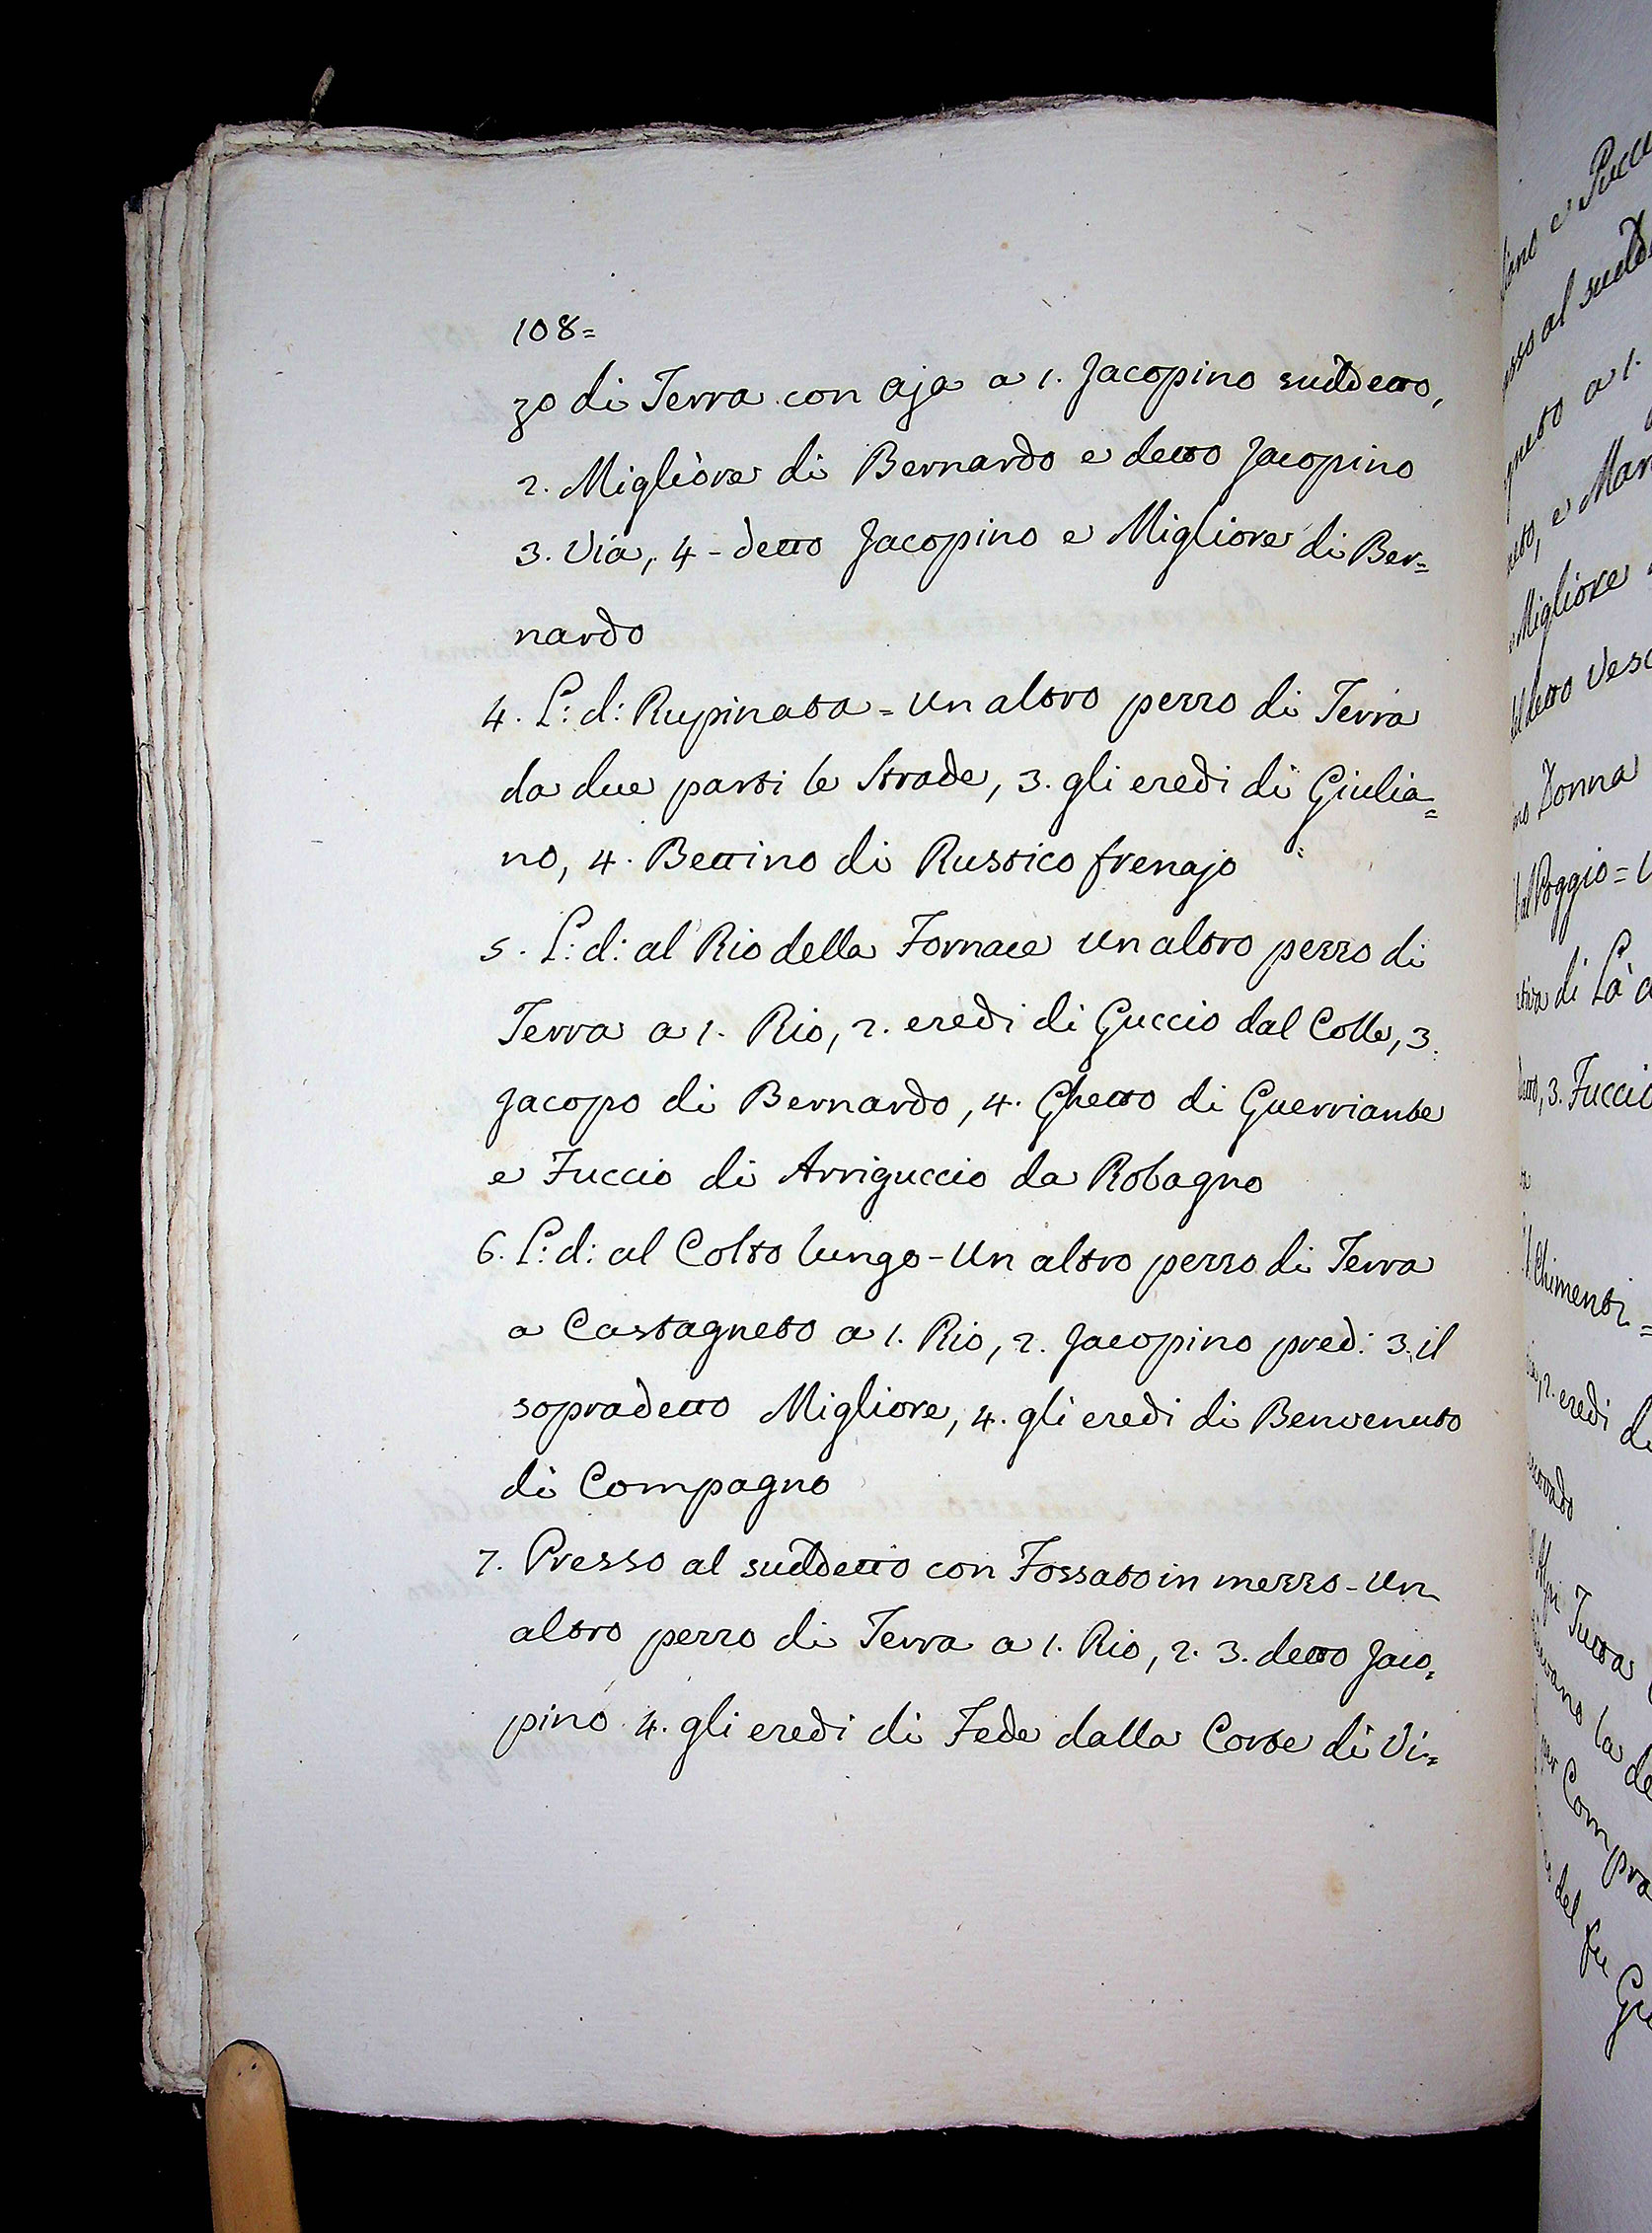 108=
zo di Terra con aja a 1. Jacopino suddetto,
2. Migliore di Bernardo e detto Jacopino
3. Via, 4 - detto Jacopino e Migliore di Ber=
nardo
4. L: d: Rupinata = Un altro pezzo di Terra
da due parti le Strade, 3. gli eredi di Giulia=
no, 4. Bettino di Rustico frenajo
5. L: d: al Rio della Fornace Un altro pezzo di
Terra a 1. Rio, 2. eredi di Guccio dal Colle, 3.
Jacopo di Bernardo, 4. Ghetto di Guerriante
e Fuccio di Arriguccio da Robagno
6. L: d: al Colto lungo - Un altro pezzo di Terra
a Castagneto a 1. Rio, 2. Jacopino pred: 3. il
sopradetto Migliore, 4. gli eredi di Benvenuto
di Compagno
7. Presso al suddetto con Fossato in mezzo - Un
altro pezzo di Terra a 1. Rio, 2. 3. detto Jaco=
pino 4. gli eredi di Fede dalla Corte di Vi=
e
al
a 1.
e
Migliore
detto
Donna
Poggio =
di Là
3. Fuccio
Chimenti =
2. eredi
Tutta
la
del